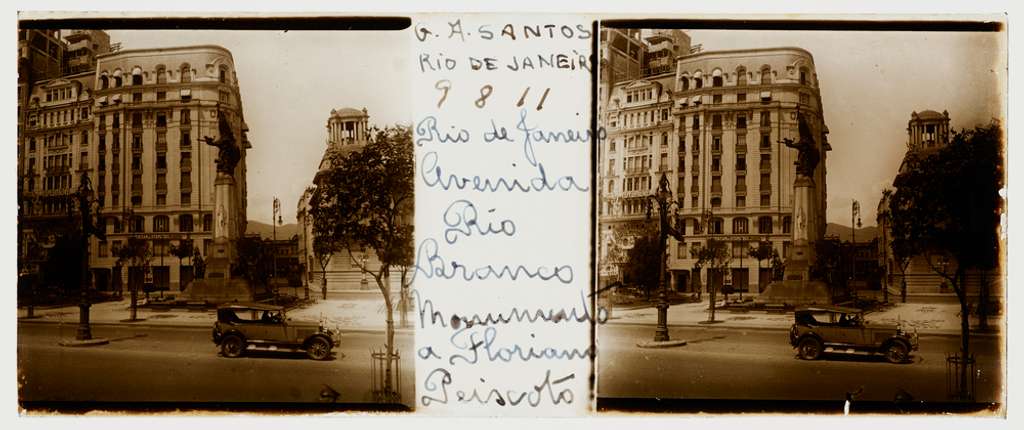 G. A. SANTOS
RIO DE JANEIRO
9 8 11
Rio de Janeiro
Avenida
Rio
Branco
Monumento
a Floriano
Peixoto